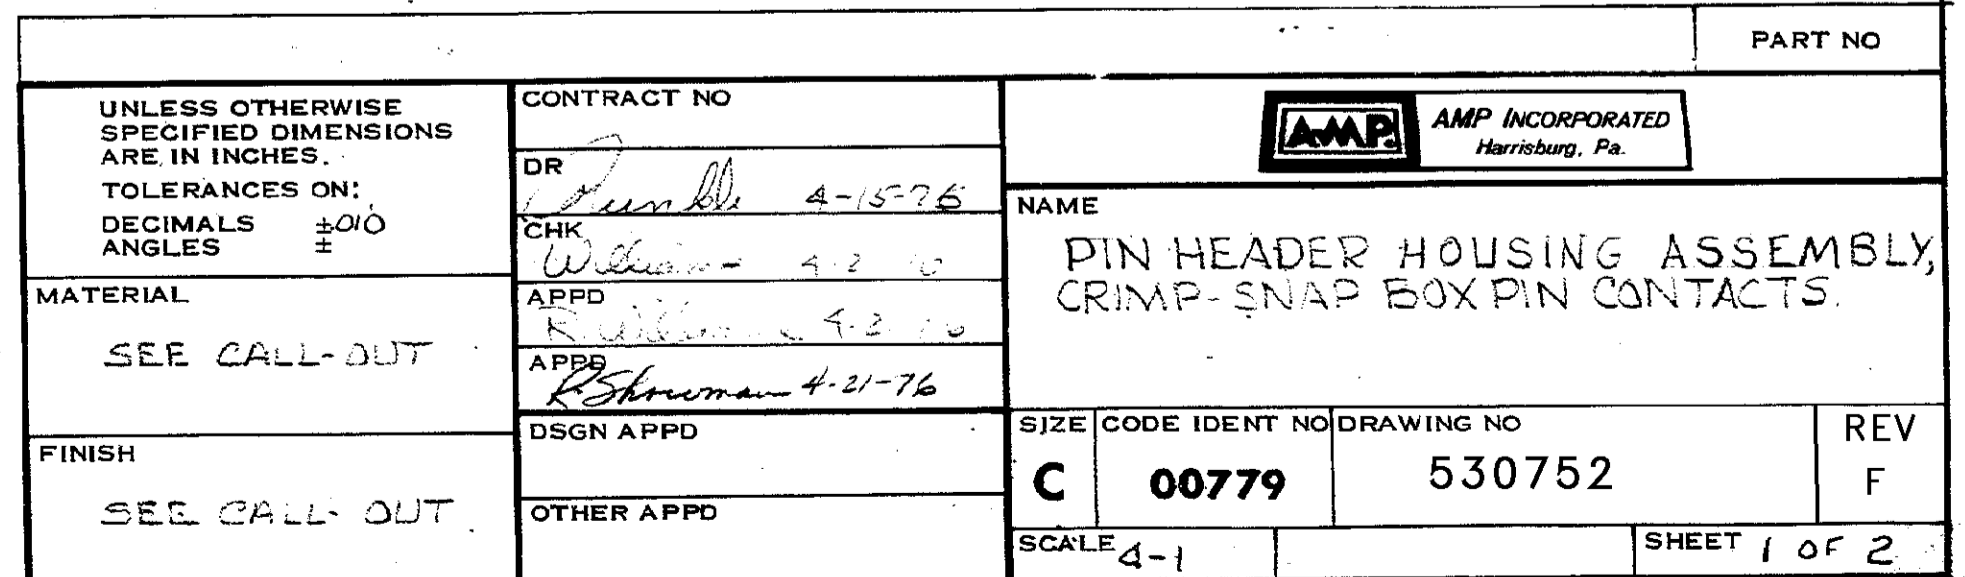 PART NO
UNLESS OTHERWISE
SPECIFIED DIMENSIONS
ARE IN INCHES.
TOLERANCES ON:
DECIMALS ±.010
ANGLES ±
MATERIAL
SEE CALL-OUT
FINISH
SEE CALL-OUT
CONTRACT NO
DR
4-15-76
CHK
Williams
APPD
R. Williams
APPD
R Showman 4-21-76
DSGN APPD
OTHER APPD
AMP
AMP INCORPORATED
Harrisburg, Pa.
NAME
PIN HEADER HOUSING ASSEMBLY,
CRIMP-SNAP BOX PIN CONTACTS.
SIZE
C
CODE IDENT NO
00779
DRAWING NO
530752
REV
F
SCALE 4-1
SHEET 1 OF 2